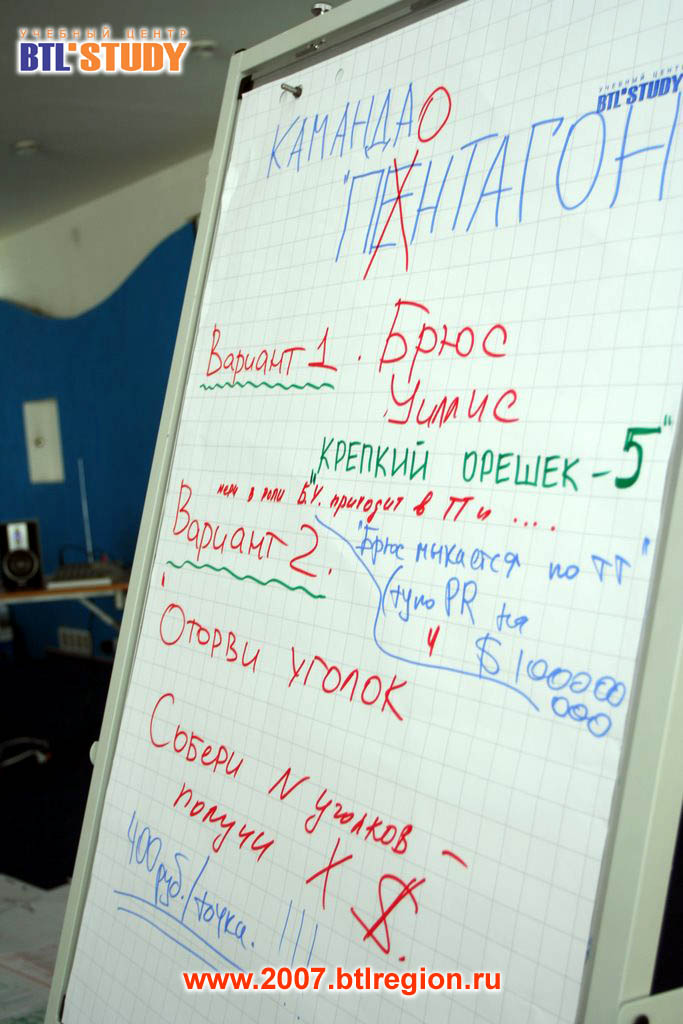 УЧЕБНЫЙ ЦЕНТР
BTL'STUDY
УЧЕБНЫЙ ЦЕНТР
BTL'STUDY
КАМАНДАО
"ПЕНТАГОН
Вариант 1. Брюс
Уиллис
"КРЕПКИЙ ОРЕШЕК - 5"
в роли Б.У. приходит в П и ....
Вариант 2.
"Брюс мыкается по ТТ"
(тупо PR на
и $ 100000
000
Оторви уголок
Собери N уголков -
получи X $.
400 руб./точка. !!!
www.2007.btlregion.ru